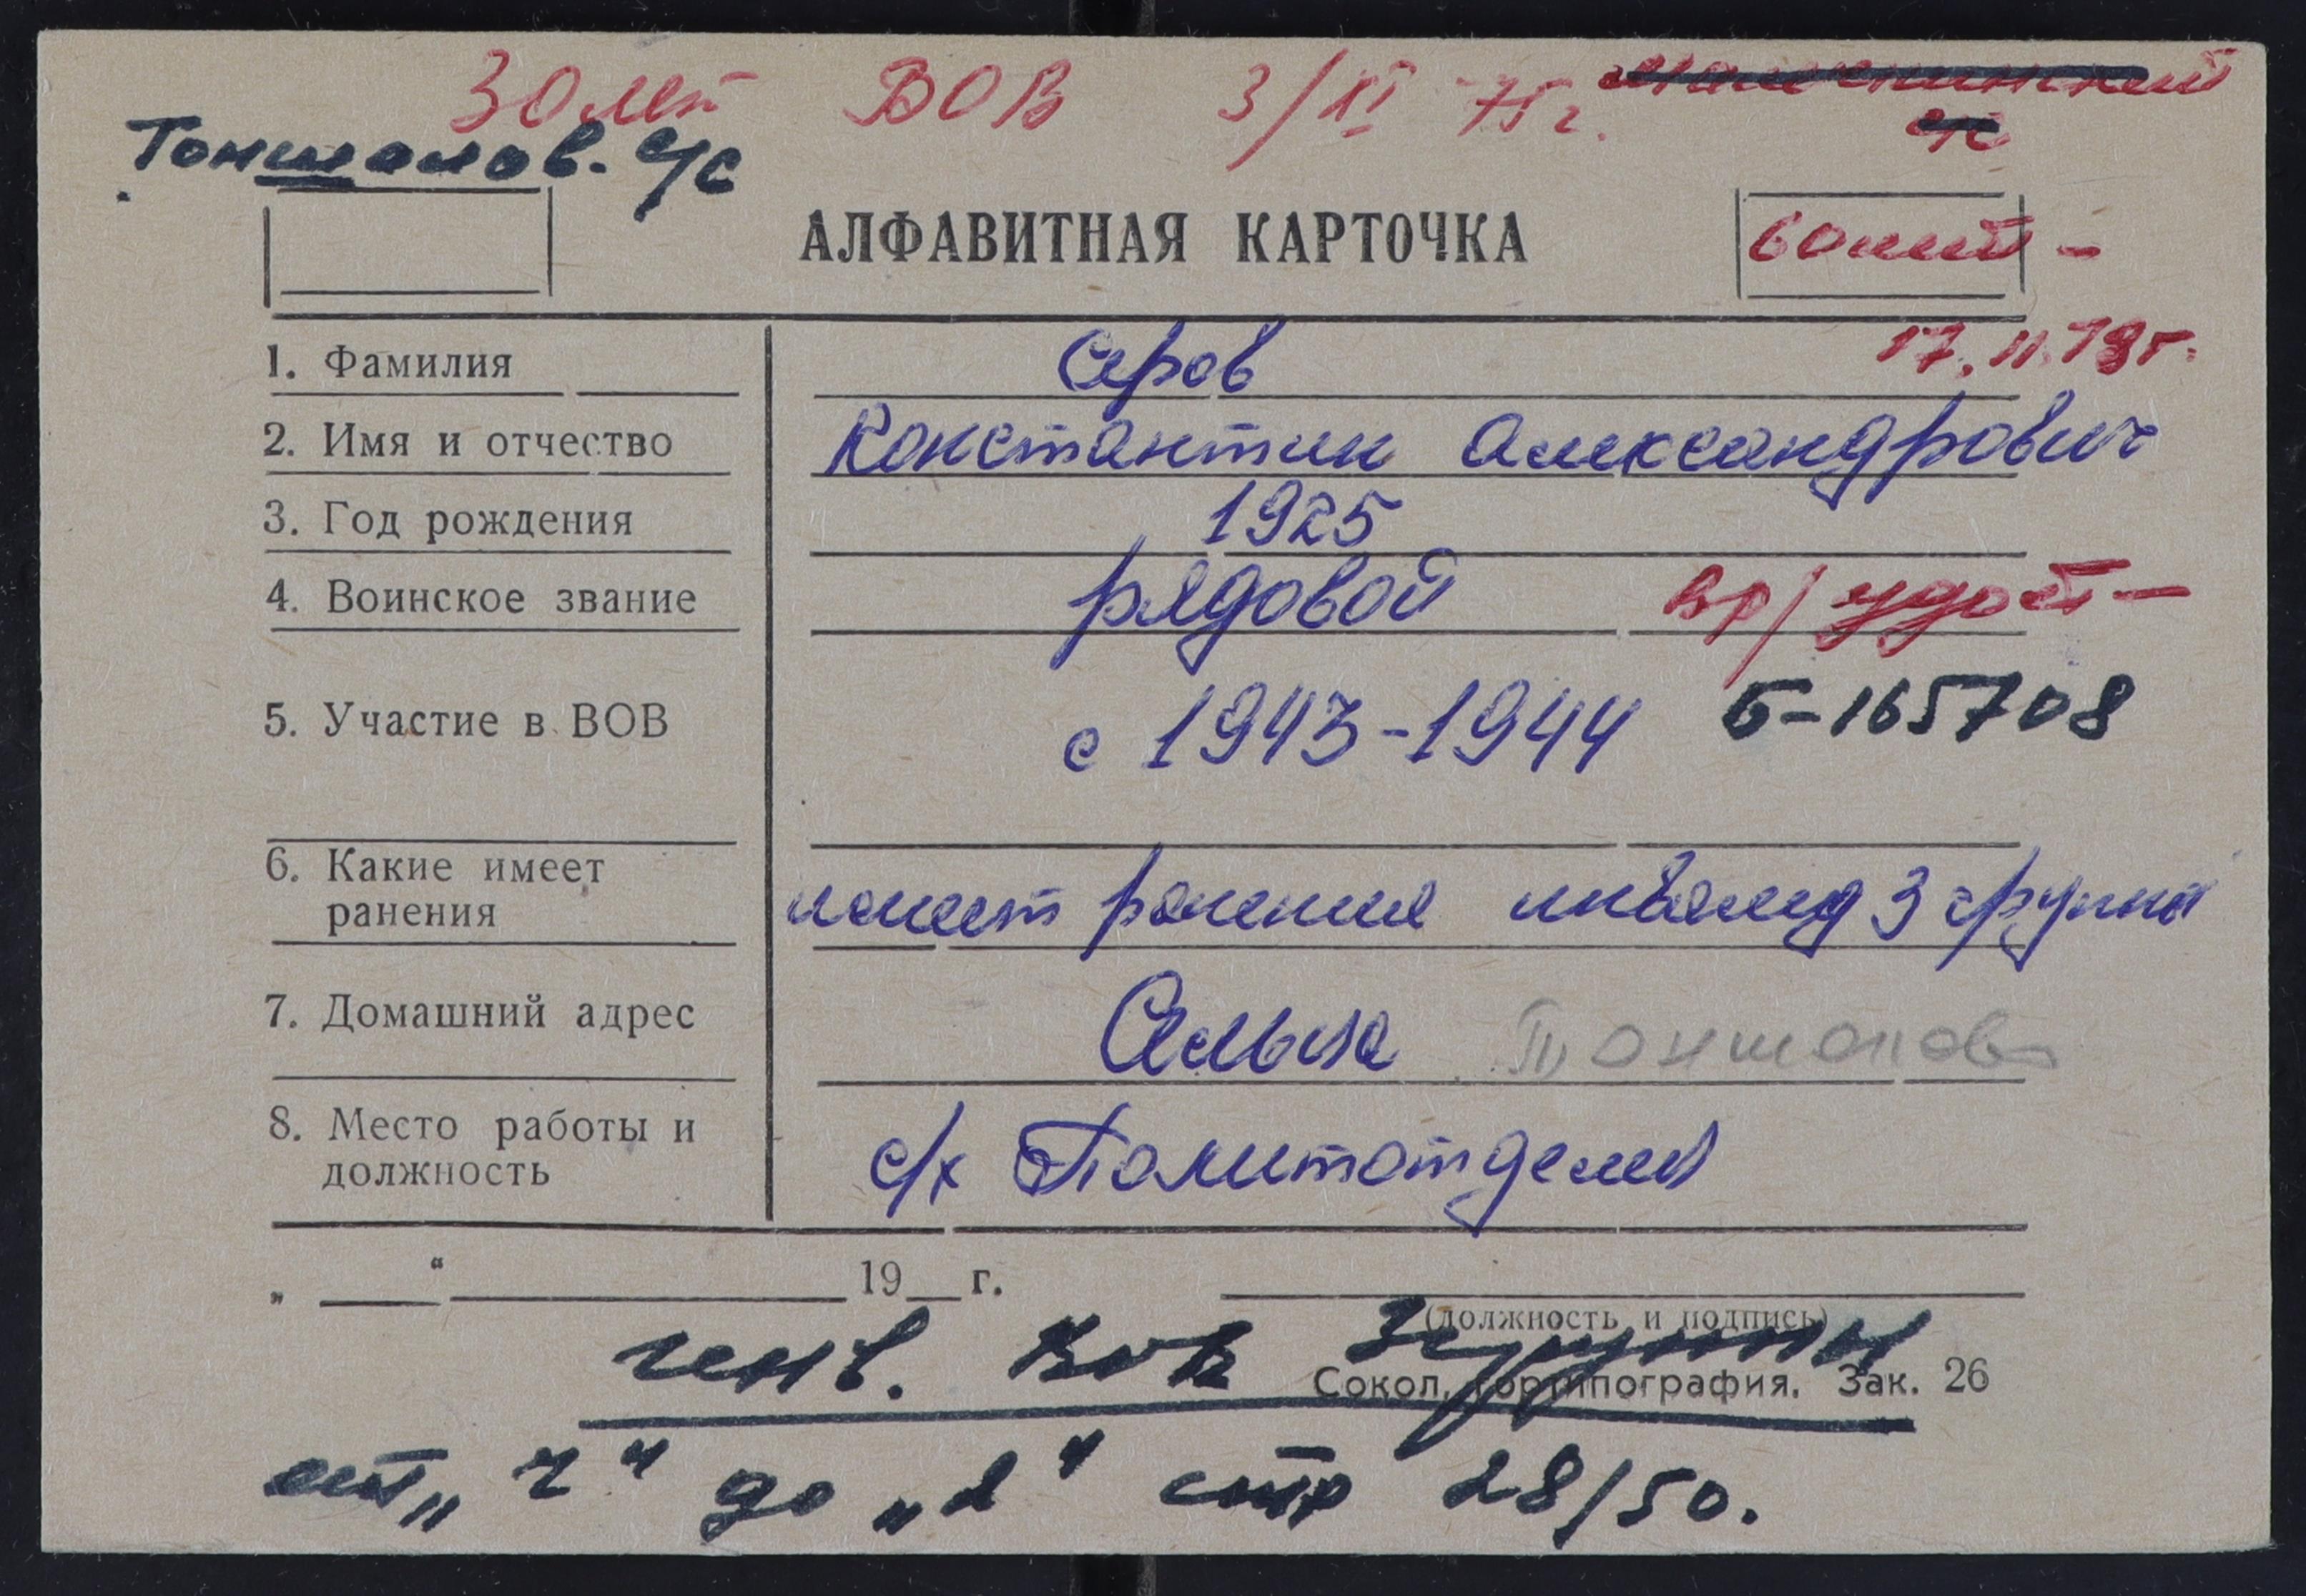 30 лет ВОВ 3/XI 75 г.
с/с
Тоншалов. с/с
АЛФАВИТНАЯ КАРТОЧКА
60 лет -
17.11.78г.
1. Фамилия Серов
2. Имя и отчество Константин Александрович
3. Год рождения 1925
4. Воинское звание рядовой вр/удост-
5. Участие в ВОВ с 1943-1944 Б-165708
6. Какие имеет ранения имеет ранение инвалид 3 группы
7. Домашний адрес Тоншалов
8. Место работы и должность с/х Политотделец
„ “ 19 г.
(должность и подпись)
инв. ВОВ 3 группы
Сокол, гортипография. Зак. 26
до стр 28/50.